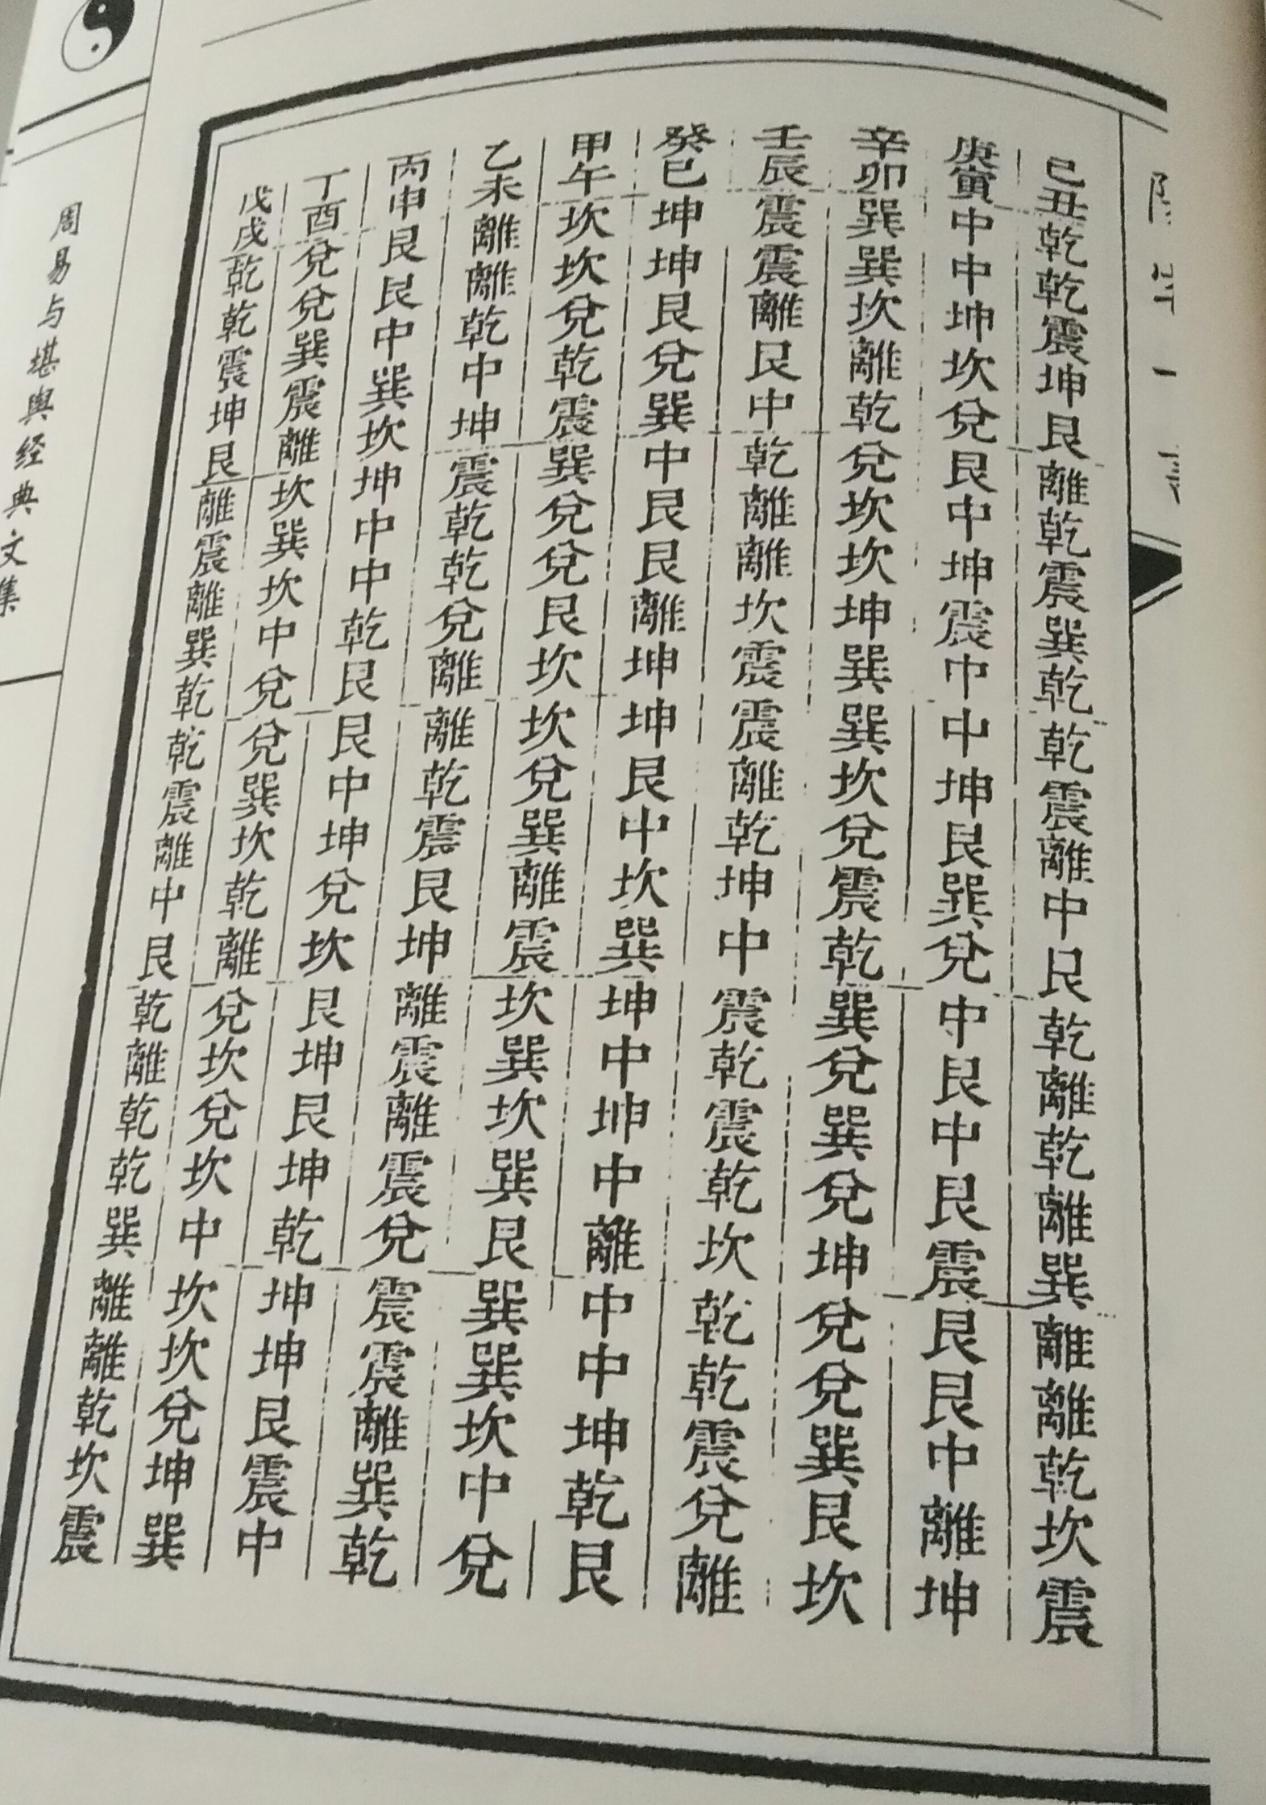 巳丑乾乾震坤艮離乾震巽乾乾震離中艮乾離乾離巽離離乾坎震
庚寅中中坤坎兌艮中坤震中中坤艮巽兌中艮中艮震艮艮中離坤
辛卯巽巽坎離乾兌坎坎坤巽巽坎兌震乾巽兌巽兌坤兌兌巽艮坎
壬辰震震離艮中乾離離坎震震離乾坤中震乾震乾坎乾乾震兌離
癸巳坤坤艮兌巽中艮艮離坤坤艮中坎巽坤中坤中離中中坤乾艮
甲午坎坎兌乾震巽兌兌艮坎坎兌巽離震坎巽坎巽艮巽巽坎中兌
乙未離離乾中坤震乾乾兌離離乾震艮坤離震離震兌震震離巽乾
丙申艮艮中巽坎坤中中乾艮艮中坤兌坎艮坤艮坤乾坤坤艮震中
丁酉兌兌巽震離坎巽坎中兌兌巽坎乾離兌坎兌坎中坎坎兌坤巽
戊戌乾乾震坤艮離震離巽乾乾震離中艮乾離乾乾巽離離乾坎震
周易与堪舆经典文集